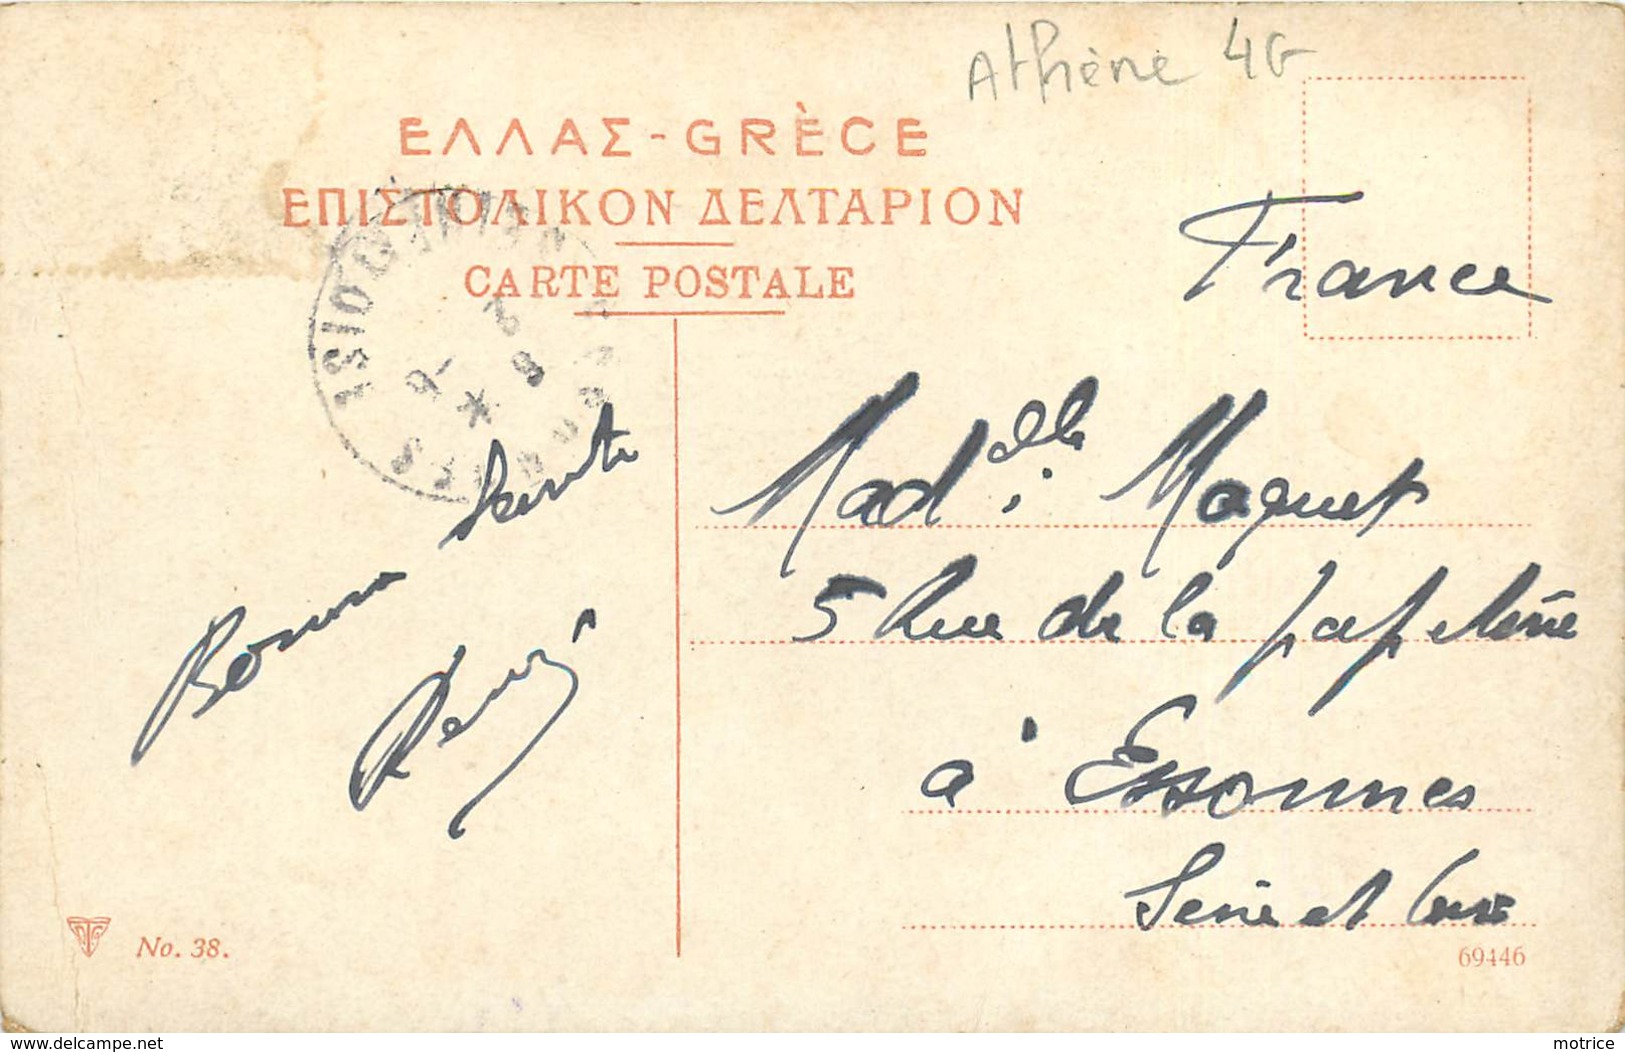 Athène 4G
ΕΛΛΑΣ - GRÈCE
ΕΠΙΣΤΟΛΙΚΟΝ ΔΕΛΤΑΡΙΟΝ
CARTE POSTALE
France
Bonne Santé
Mad^elle Maquet
5 Rue de la papeterie
à Essonnes
Seine et Oise
No. 38.
69446
www.delcampe.net
motrice